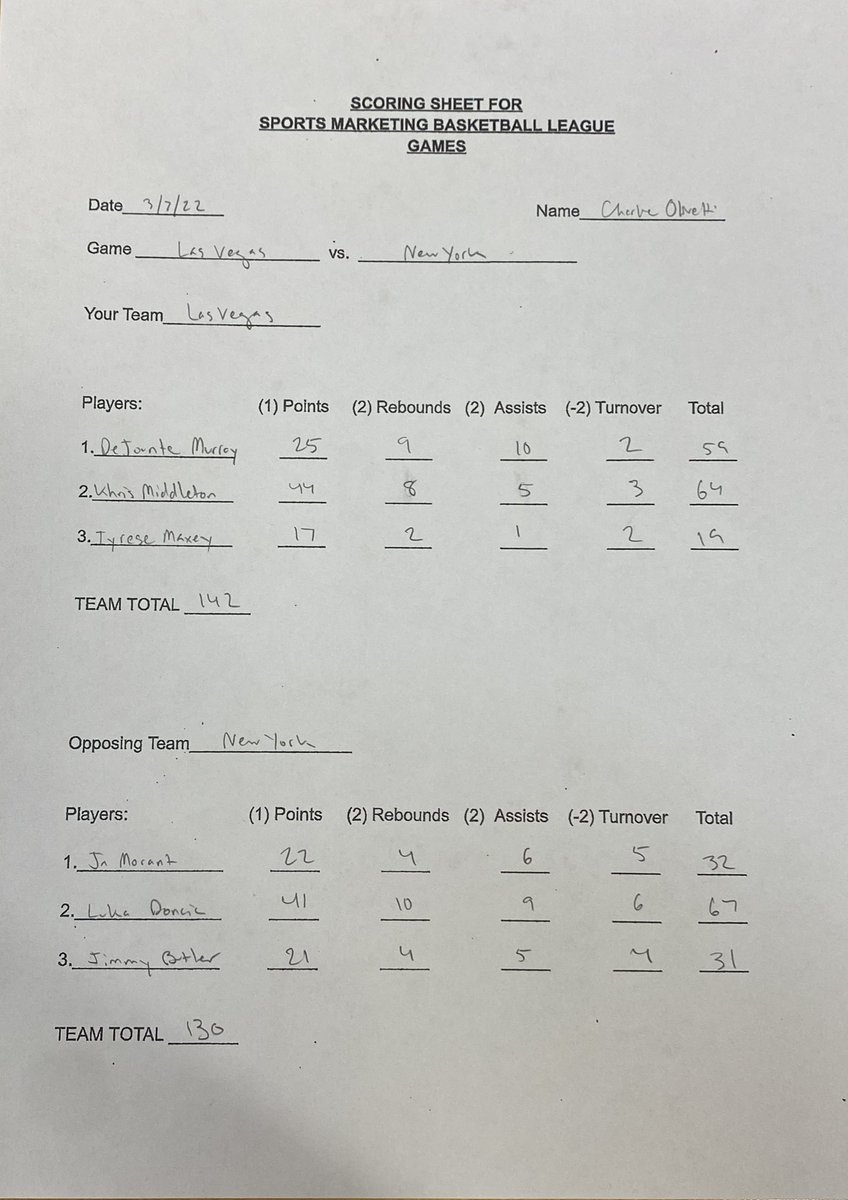 SCORING SHEET FOR
SPORTS MARKETING BASKETBALL LEAGUE
GAMES
Date 3/7/22 Name
Game Las Vegas vs. New York
Your Team Las Vegas
Players: (1) Points (2) Rebounds (2) Assists (-2) Turnover Total
1. DeJounte Murray 25 9 10 2 59
2. Khris Middleton 44 8 5 3 64
3. Tyrese Maxey 17 2 1 2 19
TEAM TOTAL 142
Opposing Team New York
Players: (1) Points (2) Rebounds (2) Assists (-2) Turnover Total
1. Ja Morant 22 4 6 5 32
2. Luka Doncic 41 10 9 6 67
3. Jimmy Butler 21 4 5 4 31
TEAM TOTAL 130